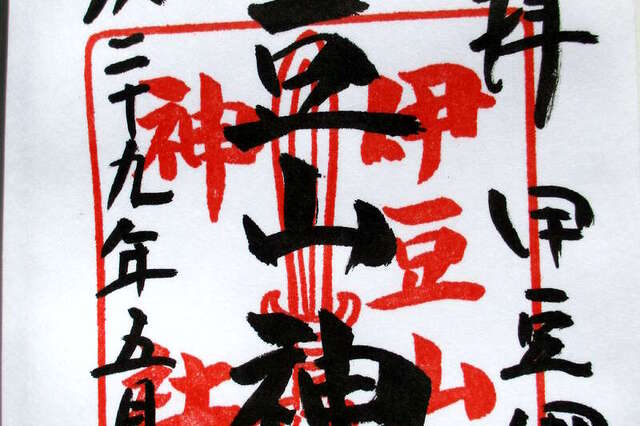 拝 伊豆
伊豆山
豆山神
神社
二十九年五月